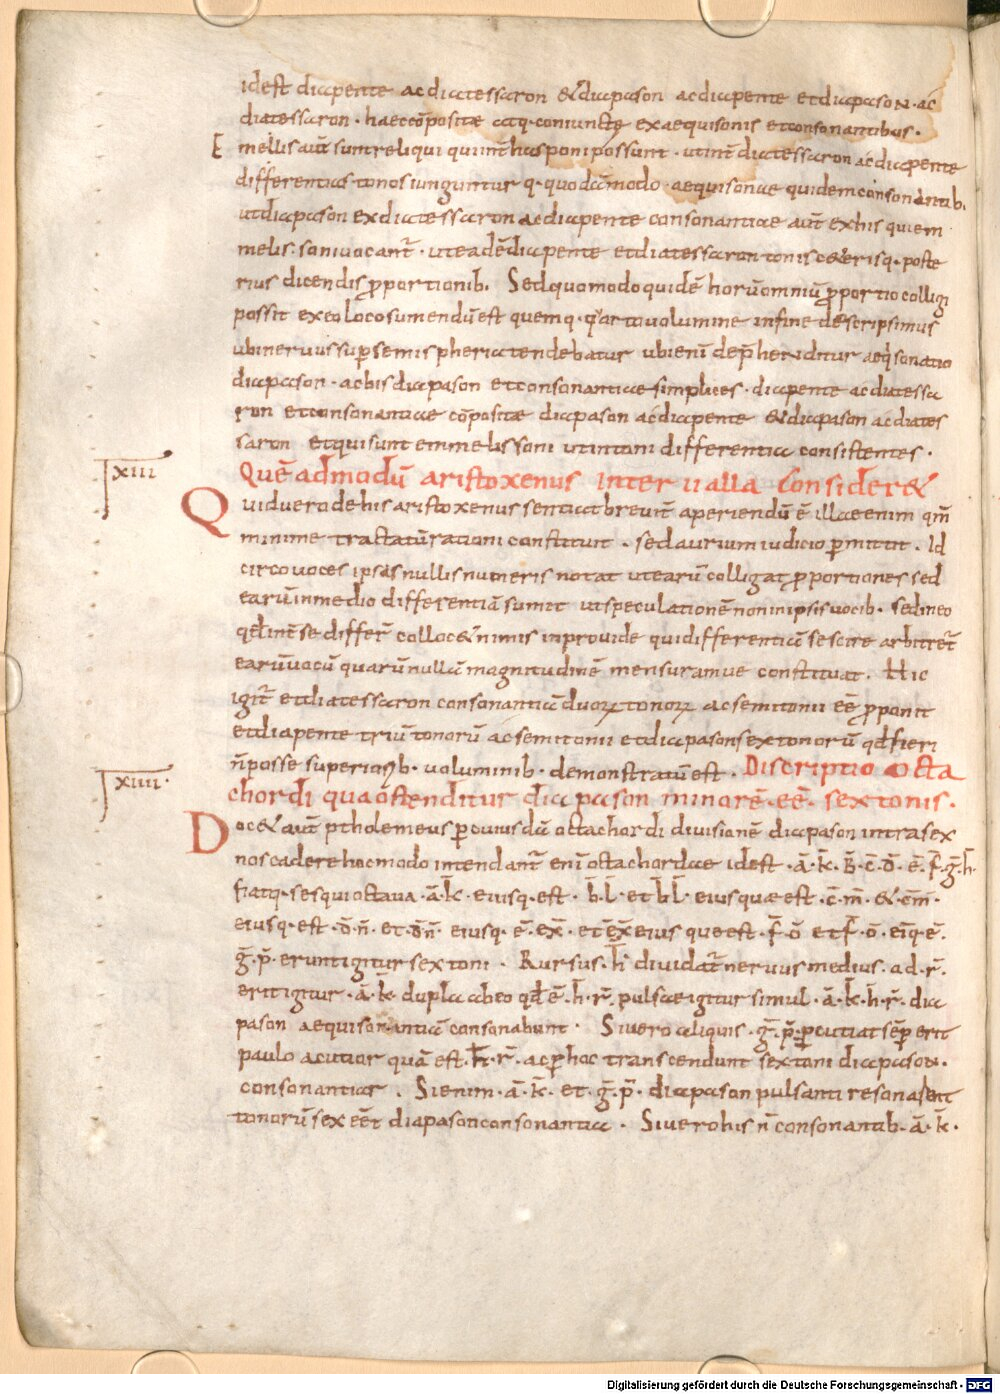 idest diapente ac diatessaron & diapason ac diapente et diapasoN · ac
diatessaron · haec cōpositae atq· coniunctę ex aequisonis et consonantibus ·
Emellis aut̄ sunt reliqui qui int̄ hos poni possunt · ut int̄ diatessaron ac diapente
differentias tonos iunguntur q· quodāmodo · aequisonae quidem consonantib,
ut diapason ex diatessaron ac diapente consonantiae aut̄ ex his qui em
melis · soni uocant̄ · ut eadē diapente et diatessaron tonis c&erisq· poste
rius dicendis p̄portionib. Sed quomodo quidē horū omniū p̄portio colligi
possit ex eo loco sumendū est quem q· quarto uolumine in fine descripsimus
ubi neruus sup̄ semispheria tendebatur ubi eni dep̄henditur aeq̇sonatio
diapason · ac bis diapason et consonantiae simplices · diapente ac diatessa
ron et consonantiae cōpositae diapason ac diapente & diapason ac diates
saron et qui sunt emmelis soni ut in toni differentia consistentes ·
XIII Quēadmodū aristoxenus interualla consider&
Qui d uero de his aristoxenus sentiat breuit̄ aperiendū ē illae enim qm̄
minime tractatū rationi constituit · sed aurium iudicio p̄mittit . Id
circo uoces ipsas nullis numeris notat ut earū colligat p̄portiones sed
earū in medio differentiā sumit ut speculationē non in ipsis uocib · sed in eo
qd̄ int̄ se differ̄ colloc& nimis inprouide qui differentiā se scire arbitret̄
earū uocū quarū nullā magnitudinē mensuramue constituat . Hic
igit̄ et diatessaron consonantiā duoꝝ tonoꝝ ac semitonii eē p̄ponit
et diapente triū tonorū ac semitonii et diapason sex tonorū qd̄ fieri
n̄ posse superiorib · uoluminib · demonstratū est · Discriptio octa
XIIII · chordi qua ostenditur diapason minorē · eē · sex tonis ·
Doc& aut̄ ptholemeus p̄ cuiusdā octachordi diuisionē diapason intra sex
nos cadere hoc modo intendant̄ eni octachordae idest · ā · k̄ · B̄ · c̄ · D̄ · ē · f̄ · ḡ · h̄ ·
fiatq· sesquioctaua · ā · k̄ eiusq· est · b̄ l̄ · et b̄ l̄ · eius quae est · c̄ · m̄ · & · c̄m̄ ·
eiusq· est · D̄ · n̄ · et · D̄n̄ · eiusq· ē · ex̄ · et ēx̄ eius que est · f̄ · ō et f̄ · ō · eiq̄ · ē ·
ḡ · p̄ · erunt igitur sex toni · Rursus · h̄ diuidat̄ neruus medius · ad · r̄ ·
erit igitur · ā · k̄ dupla ab eo qd̄ ē · h̄ · r̄ · pulsae igitur simul · ā · k̄ · h̄ · r̄ · dia
pason aequisonantiā consonabunt · Si uero aliquis · ḡ · p̄ · p̄cutiat sēp̄ erit
paulo acutior quā est · h̄ · r̄ · ac p̄ hoc transcendunt sex toni diapasoN ·
consonantiar . Si enim · ā · k̄ · et · ḡ · p̄ · diapason pulsanti resonasent
tonorū sex eēt diapason consonantia · Si uero his n̄ consonantib · ā · k̄ ·
Digitalisierung gefördert durch die Deutsche Forschungsgemeinschaft · DFG